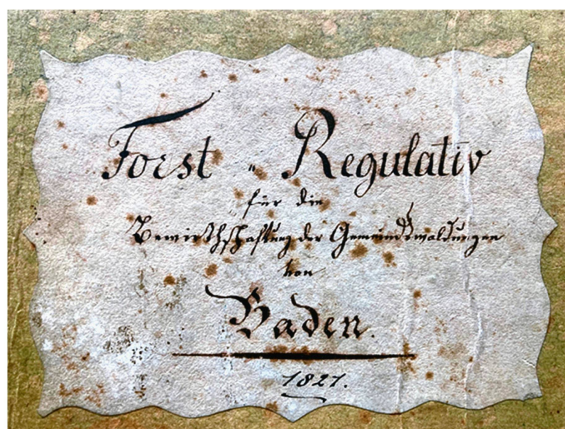 Forst „ Regulativ
für die
Bewirthschaftung der Gemeindswaldungen
von
Baden.
1821.